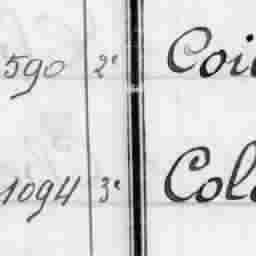 590 2e Coi
1094 3e Col